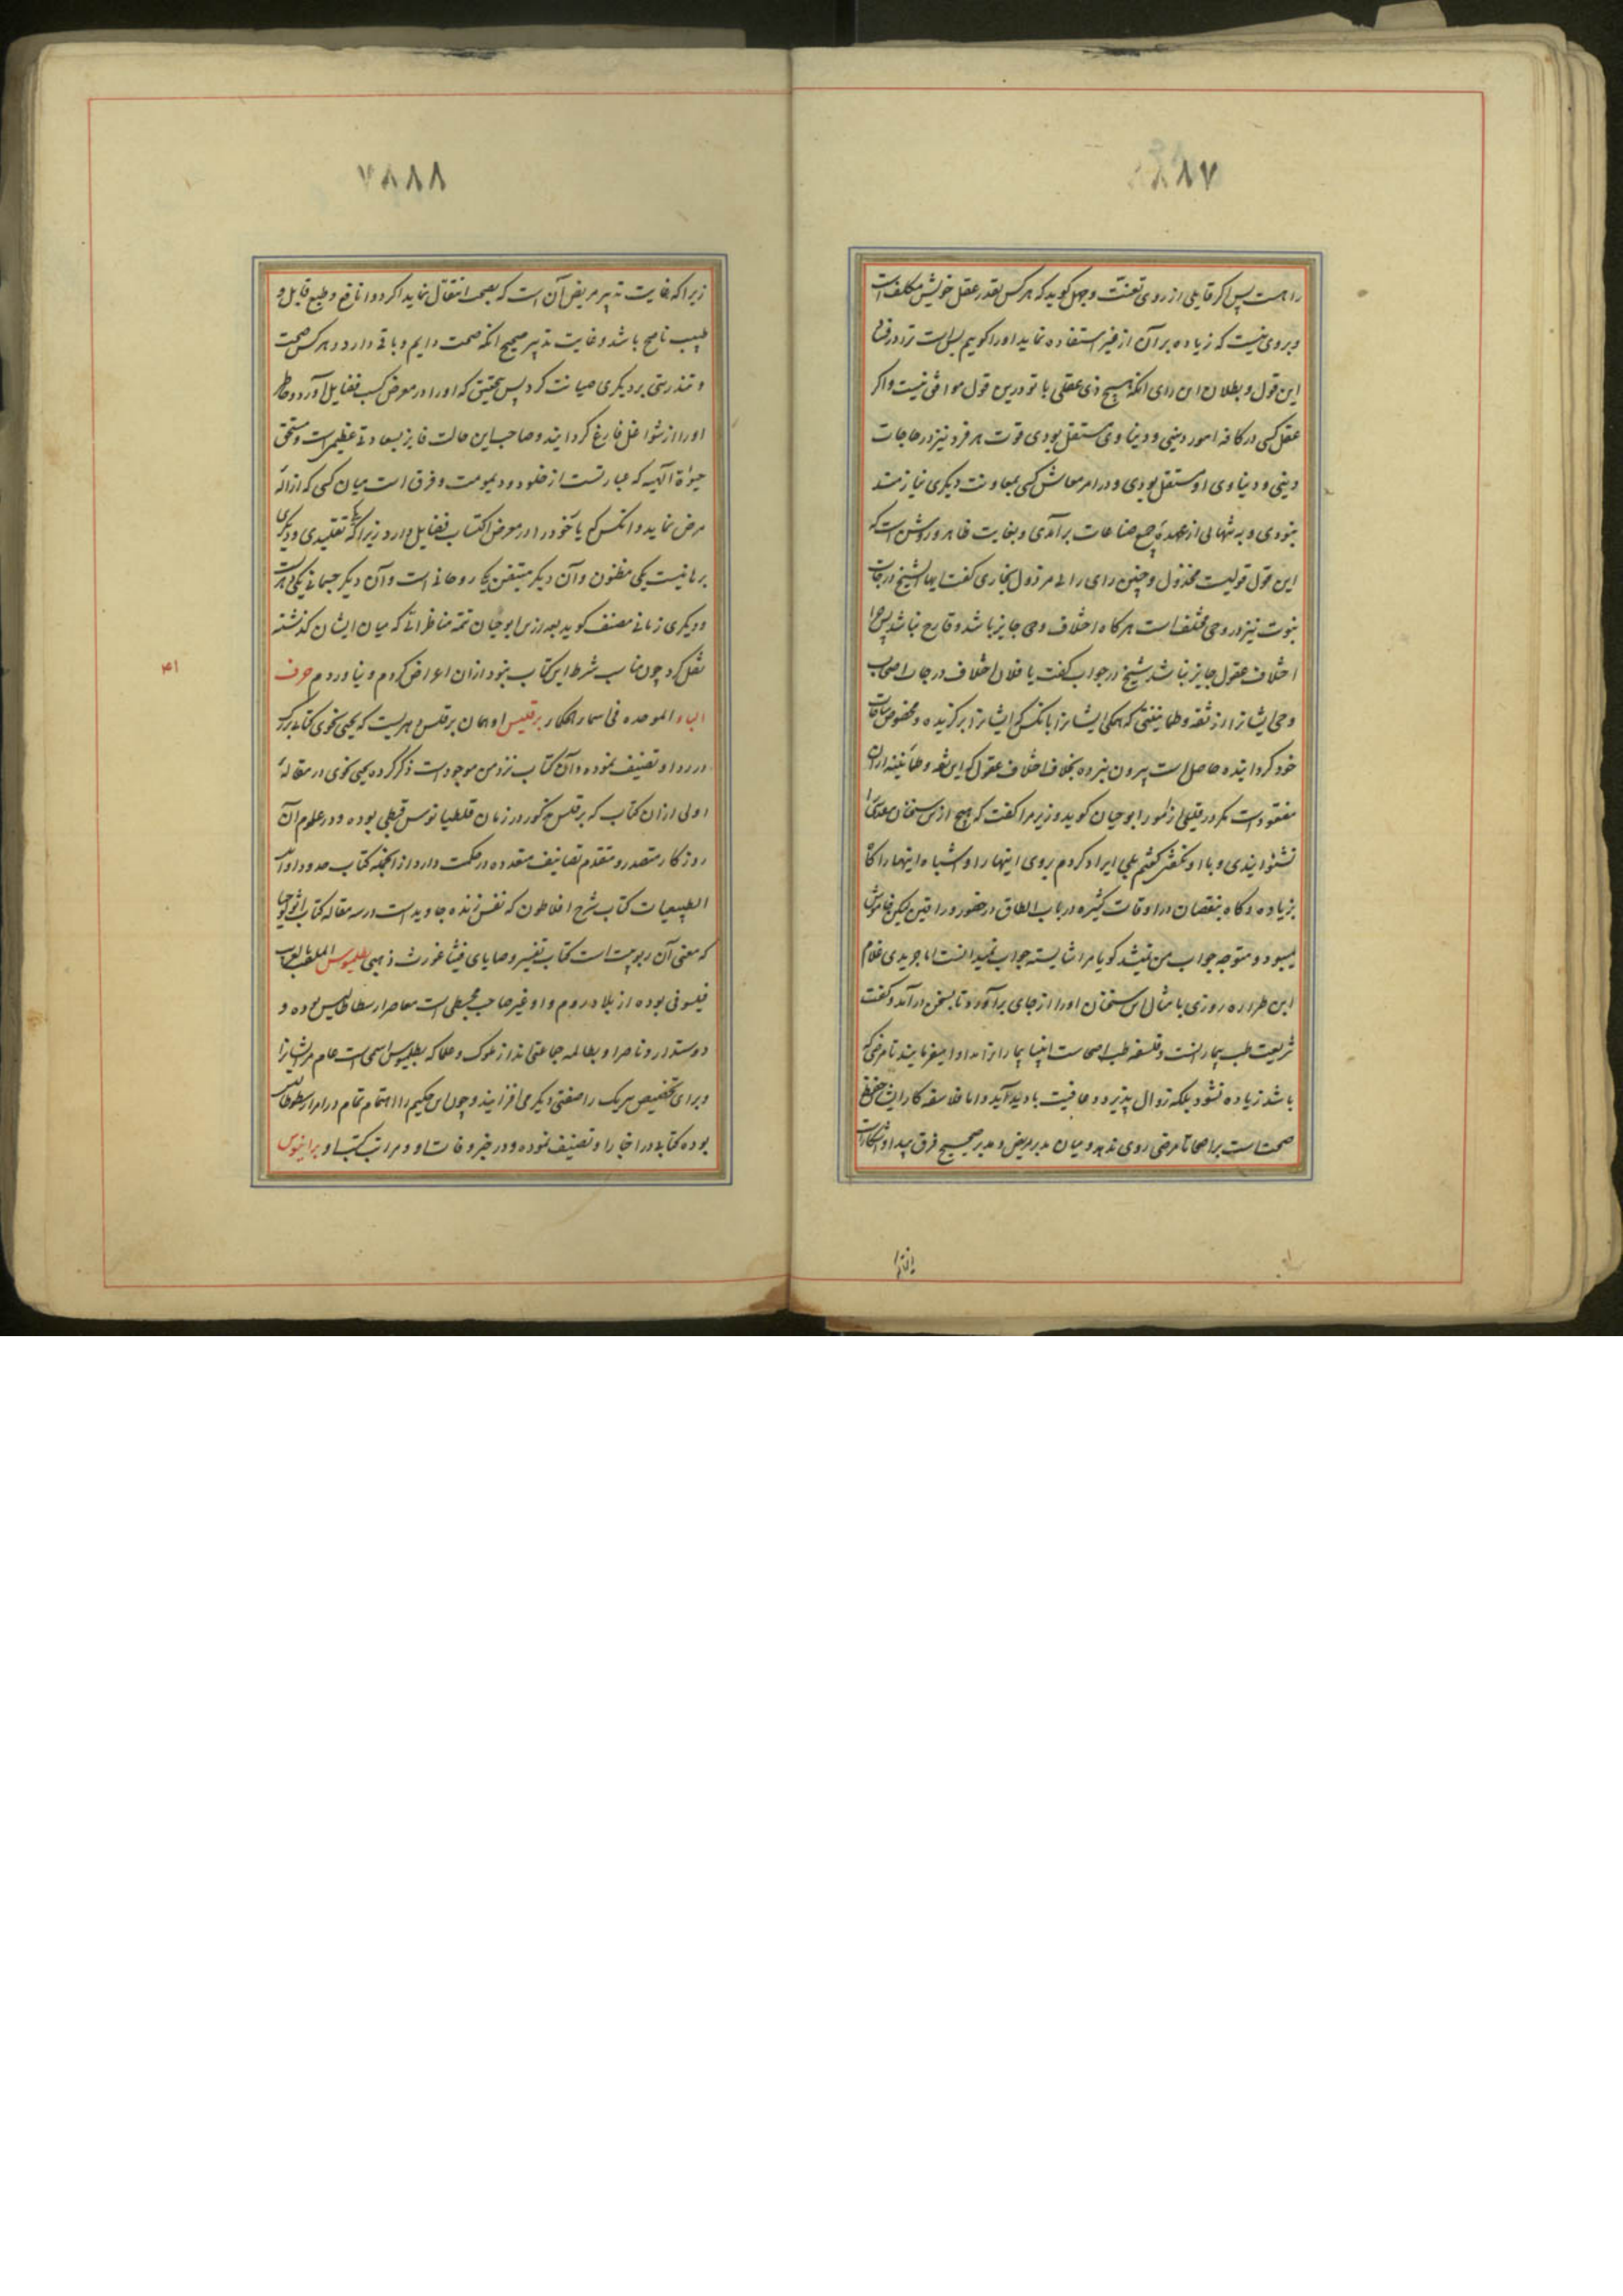 ۸۷
را هست پس اگر قایلی از روی تعنت و جهل گوید که هر کس بقدر عقل خویش مکلف است
و بر وی نیست که زیاده بر آن از غیر استفاده نماید او را گوییم بس است ترا در
این قول و بطلان این رای آنکه هیچ ذی عقلی با تو درین قول موافق نیست و اگر
عقل کسی در کافه امور دینی و دنیاوی مستقل بودی قوت هر فرد نیز در حاجات
دینی و دنیاوی او مستقل بودی و در امر معاش کسی بمعاونت دیگری نیازمند
نبودی و به تنهایی از عهده جمیع صناعات برآمدی و بغایت ظاهر و روشن است که
این قول قولیست مخذول و چنین رای رایی مرذول بخاری گفت ایها الشیخ درجات
نبوت نیز در وحی مختلف است هرگاه اختلاف وحی جایز باشد و قادح نباشد پس چرا
اختلاف عقول جایز نباشد شیخ در جواب گفت یا فلان اختلاف درجات اصحاب
وحی ایشانرا از ثقه و طمانینتی که همگی ایشانرا بانکس که ایشانرا برگزیده و مخصوص
خود گردانیده حاصل است بیرون نبرده بخلاف اختلاف عقول که این ثقه و طمانینه از آن
مفقود است مگر در قلیلی از امور ابوحیان گوید وزیر مرا گفت که هیچ ازین سخنان مقدسی را
نشنوانیدی و با او نگفتی گفتم بلی ایراد کردم بروی اینها را و اشباه اینها را گاه
بزیاده و گاه بنقصان در اوقات کثیره در باب الطاق در حضور وراقین لیکن خاموش
میبود و متوجه جواب من نمیشد گویا مرا شایسته جواب نمیدانست اما حریری غلام
ابن طراره روزی بامثال این سخنان او را از جای برآورد تا بسخن درآمد و گفت
شریعت طب بیمارانست و فلسفه طب اصحاست انبیا بیمارانرا مداوا میفرمایند تا مرضی که
باشد زیاده نشود بلکه زوال پذیرد و عافیت بادید آید و اما فلاسفه کار ایشان حفظ
صحت است بر اصحا تا مرضی روی ندهد و میان مدبر مریض و مدبر صحیح فرق پیدا و آشکار است
زیرا
۸۸
زیرا که غایت تدبیر مریض آن است که بصحت انتقال نماید اگر دوا نافع و طبع قابل و
طبیب ناصح باشد و غایت تدبیر صحیح آنکه صحت دایم و باقی دارد و هر کس صحت
و تندرستی بر دیگری صیانت کرد پس بتحقیق که او را در معرض کسب فضایل آورد و خاطر
او را از شواغل فارغ گردانید و صاحب این حالت فایز بسعادتی عظیم است و مستحق
حیوة الهیه که عبارتست از خلود و دیمومت و فرق است میان کسی که ازاله
مرض نماید و انکس که یا خود را در معرض اکتساب فضایل دارد زیرا که یکی تقلیدی و دیگری
برهانیست یکی مظنون و آن دیگر متیقن یکی روحانی است و آن دیگر جسمانی یکی دهریست
و دیگری زمانی مصنف گوید بعد ازین ابوحیان تتمه مناظراتی که میان ایشان گذشته
نقل کرد چون مناسب شرط این کتاب نبود ازان اعراض کردم و نیاوردم حرف
۴۱
الباء الموحده فی اسماء الحکماء برقلیس او همان برقلس دهریست که یحیی نحوی کتابی بزرگ
در رد او تصنیف نموده و آن کتاب نزد من موجود است ذکر کرده یحیی نحوی در مقاله
اولی ازان کتاب که برقلس مذکور در زمان دقلطیانوس قبطی بوده و در علوم آن
روزگار متصدر و متقدم تصانیف متعدده در حکمت دارد از آنجمله کتاب حدود اوایل
الطبیعیات کتاب شرح افلاطون که نفس زنده جاوید است در سه مقاله کتاب اثولوجیا
که معنی آن ربوبیت است کتاب تفسیر وصایای فیثاغورث ذهبی بطلمیوس الملقب بالغریب
فیلسوفی بوده از بلاد روم و او غیر صاحب مجسطی است معاصر ارسطاطالیس بوده و
دوستدار و ناصر او بطالمه جماعتی اند از ملوک و علما که بطلمیوس اسمی است عام مر ایشانرا
و برای تخصیص هر یک را صفتی دیگر می افزایند و چون این حکیم را اهتمام تمام در امر ارسطوطالیس
بوده کتابی در اخبار او تصنیف نموده و در خبر وفات او و مراتب کتب او براخوس